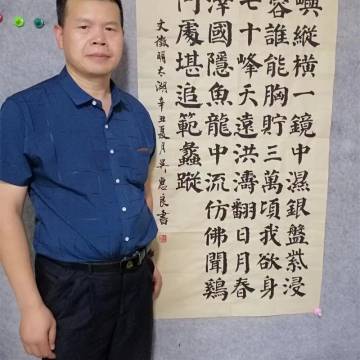 嶼縱橫一鏡中濕銀盤紫浸
誰能胸貯三萬頃我欲身
七十峰天遠洪濤翻日月春
澤國隱魚龍中流仿佛聞鷄
何處堪追範蠡蹤
文徵明太湖辛丑夏月吳惠良書